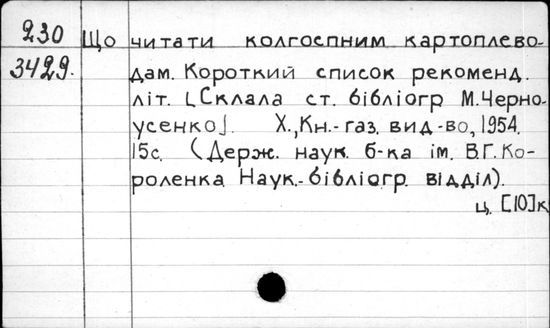 230
3429.
Що читати колгоспним картоплево-
дам. Короткий список рекоменд.
літ. [Склала ст. бібліогр М.Черно-
усенко]. Х., Кн.-газ. вид-во, 1954.
15с. (Держ. наук. б-ка ім. В.Г. Ко-
роленка Наук.-бібліогр. відділ).
ц. [10]к